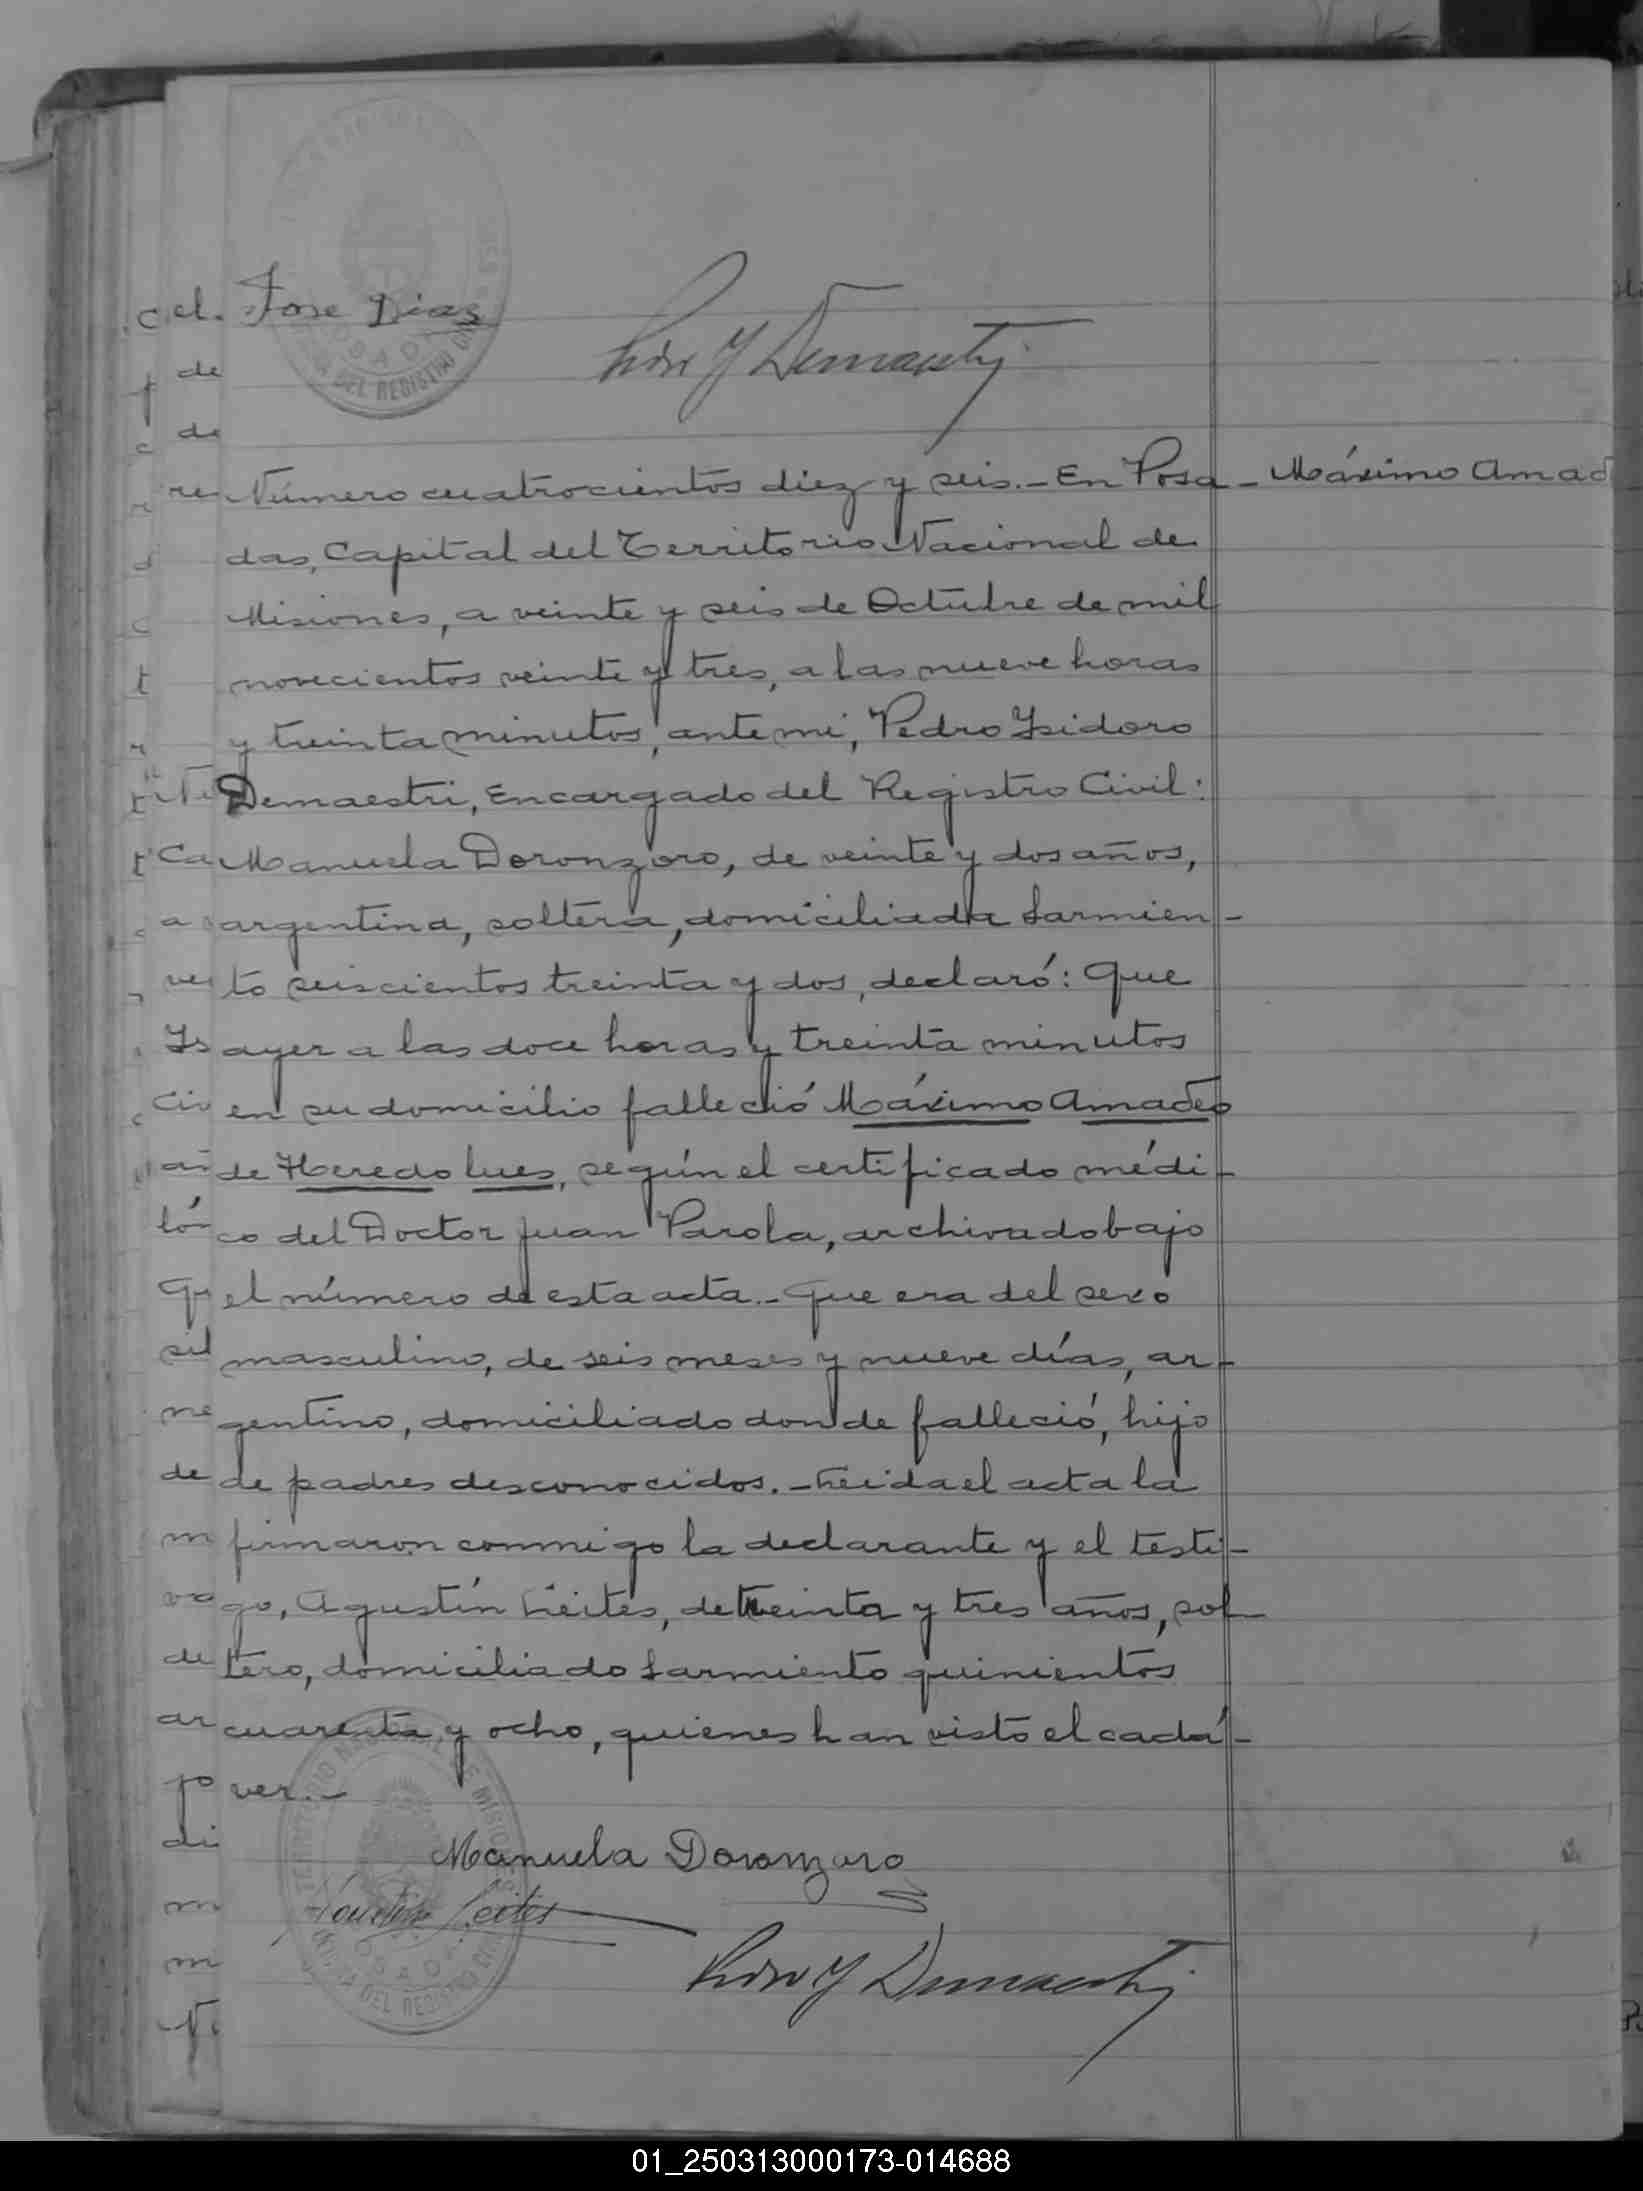 Jose Dias
Pedro Y Demaestri
Número cuatrocientos diez y seis.- En Posa- Máximo Amad
das, Capital del Territorio Nacional de
Misiones, a veinte y seis de Octubre de mil
novecientos veinte y tres, a las nueve horas
y treinta minutos, ante mi, Pedro Ysidoro
Demaestri, Encargado del Registro Civil:
Manuela Doronzoro, de veinte y dos años,
argentina, soltera, domiciliada Sarmien-
to seiscientos treinta y dos, declaró: Que
ayer a las doce horas y treinta minutos
en su domicilio falleció Máximo Amadeo
de Heredo lues, según el certificado médi-
co del Doctor Juan Parola, archivado bajo
el número de esta acta.- Que era del sexo
masculino, de seis meses y nueve días, ar-
gentino, domiciliado donde falleció, hijo
de padres desconocidos.- Leida el acta la
firmaron conmigo la declarante y el testi-
go, Agustín Leites, de treinta y tres años, sol-
tero, domiciliado Sarmiento quinientos
cuarenta y ocho, quienes han visto el cadá-
ver.-
TERRITORIO NACIONAL DE MISIONES
Manuela Doronzoro
Agustin Leites
POSADAS
DEL REGISTRO CIVIL
Pedro Y Demaestri
01_250313000173-014688